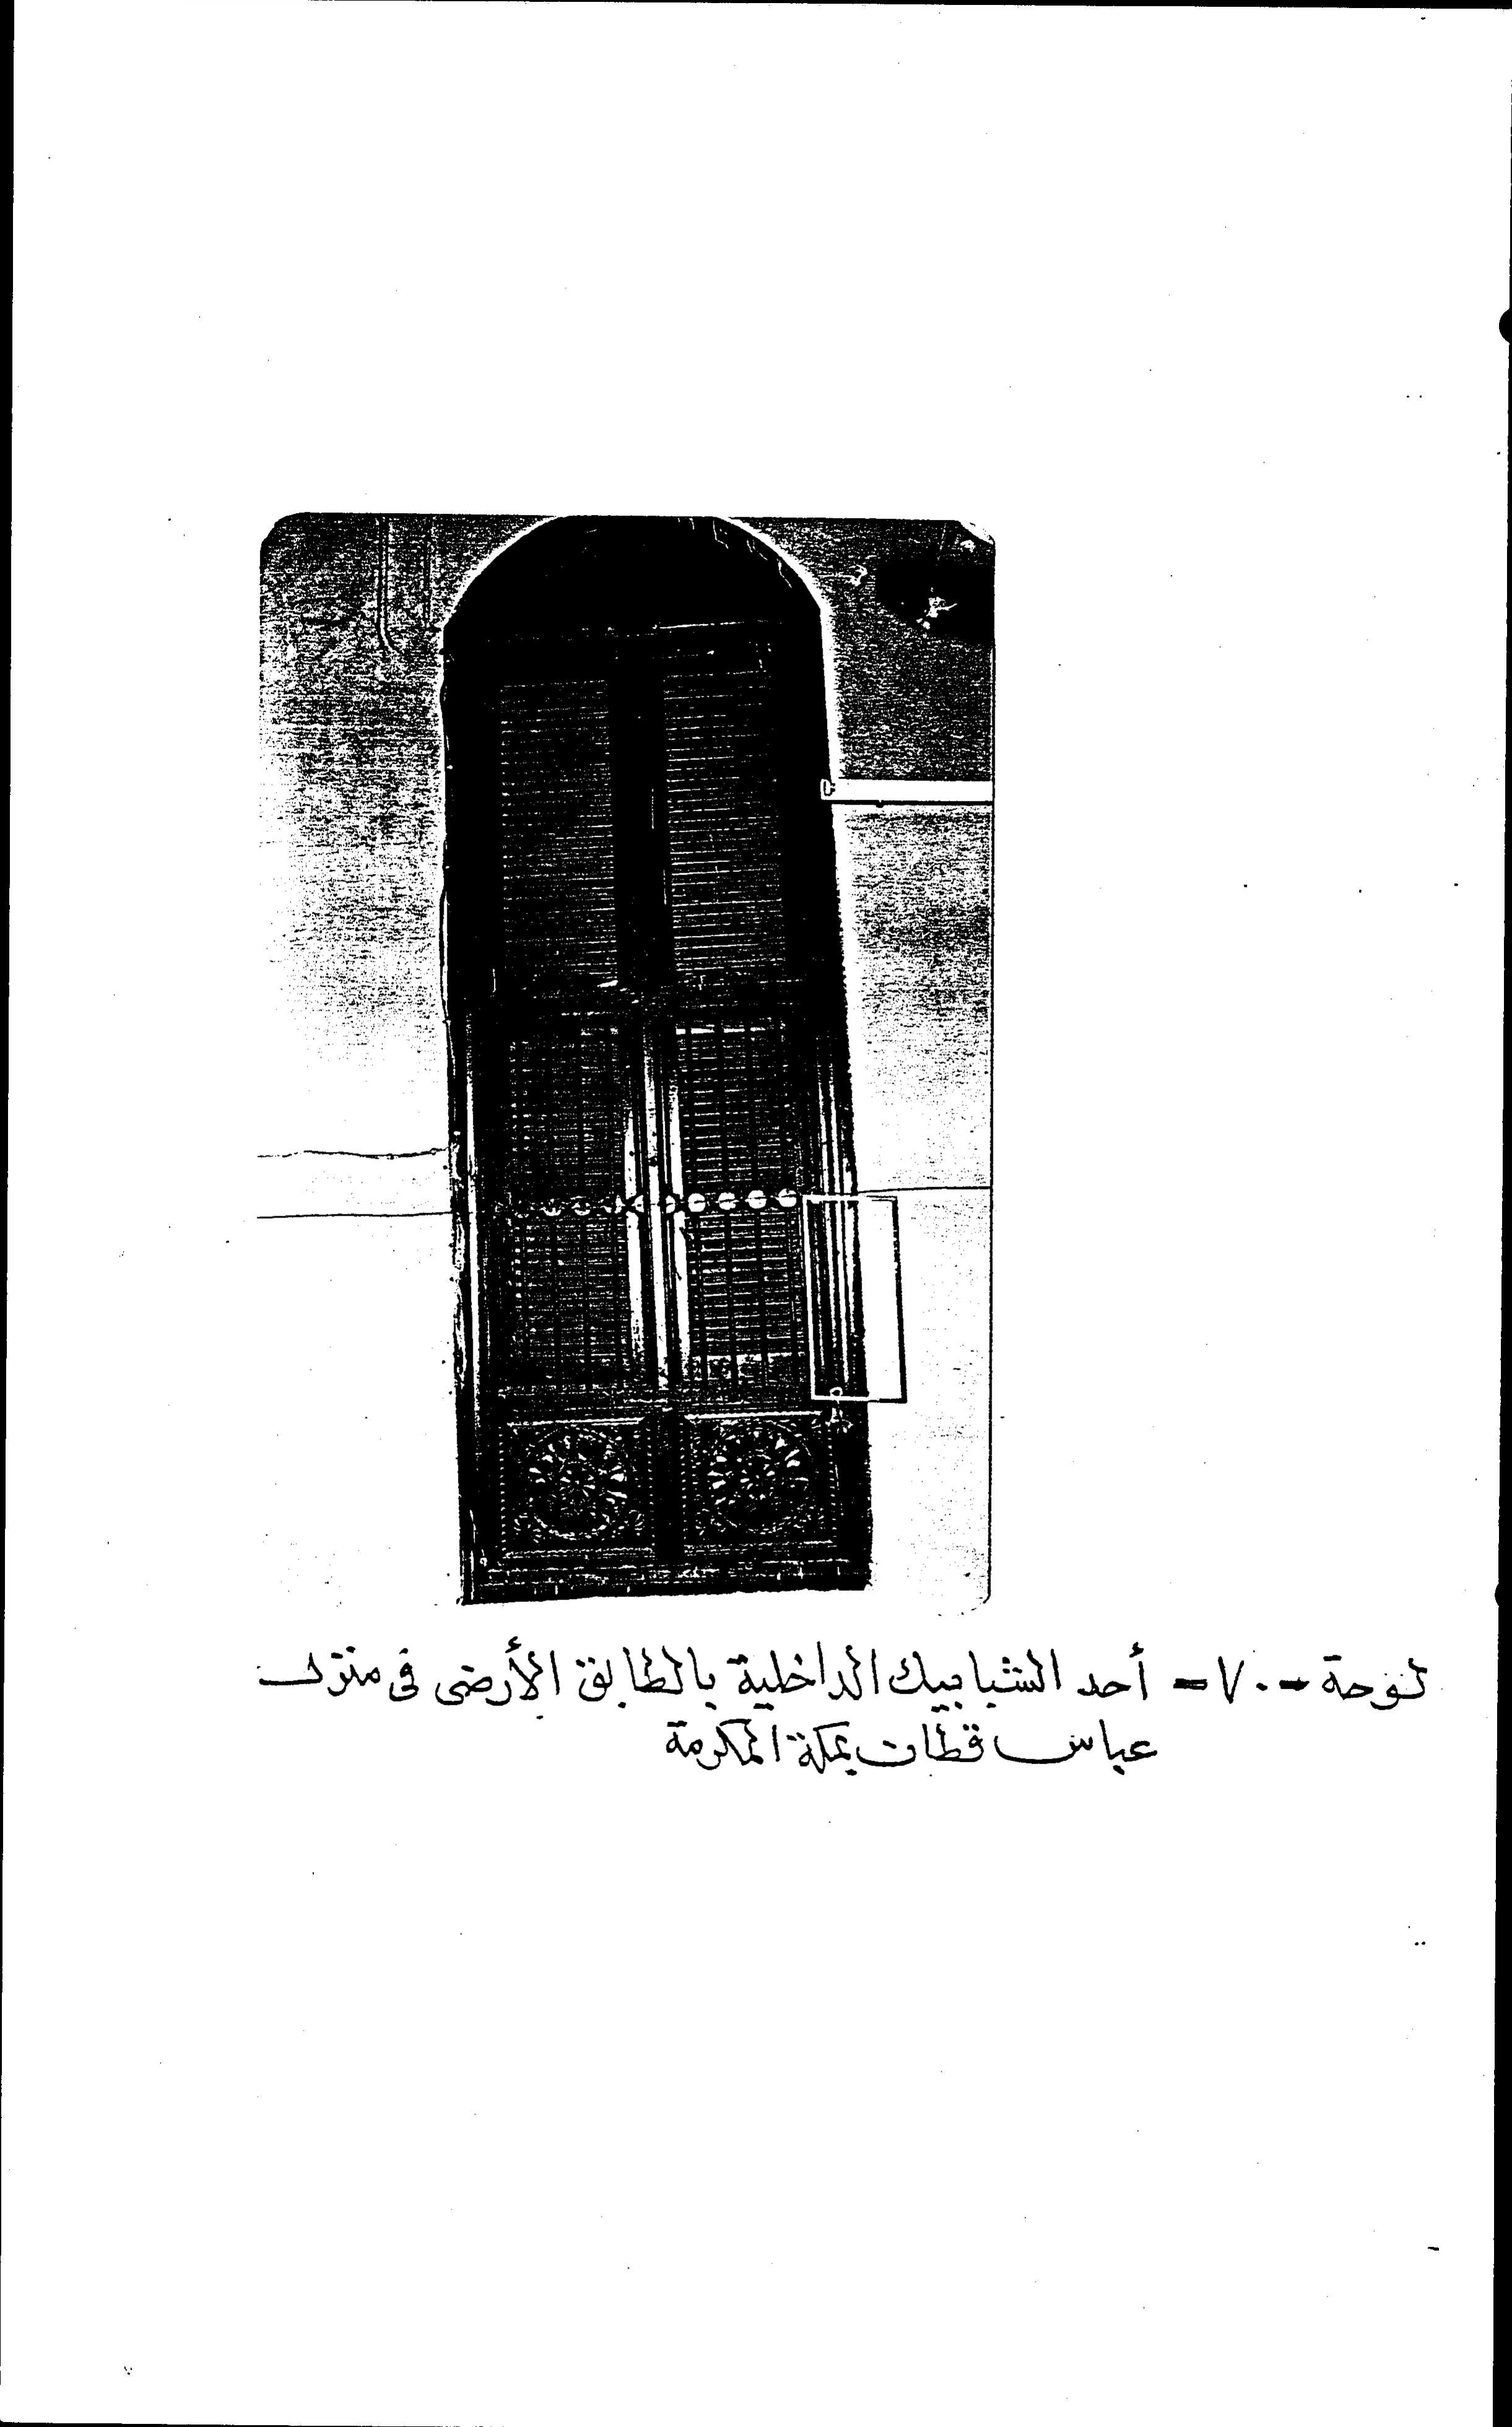 لوحة - ٧٠ - أحد الشبابيك الداخلية بالطابق الأرضى فى منزل
عباس قطان بمكة المكرمة